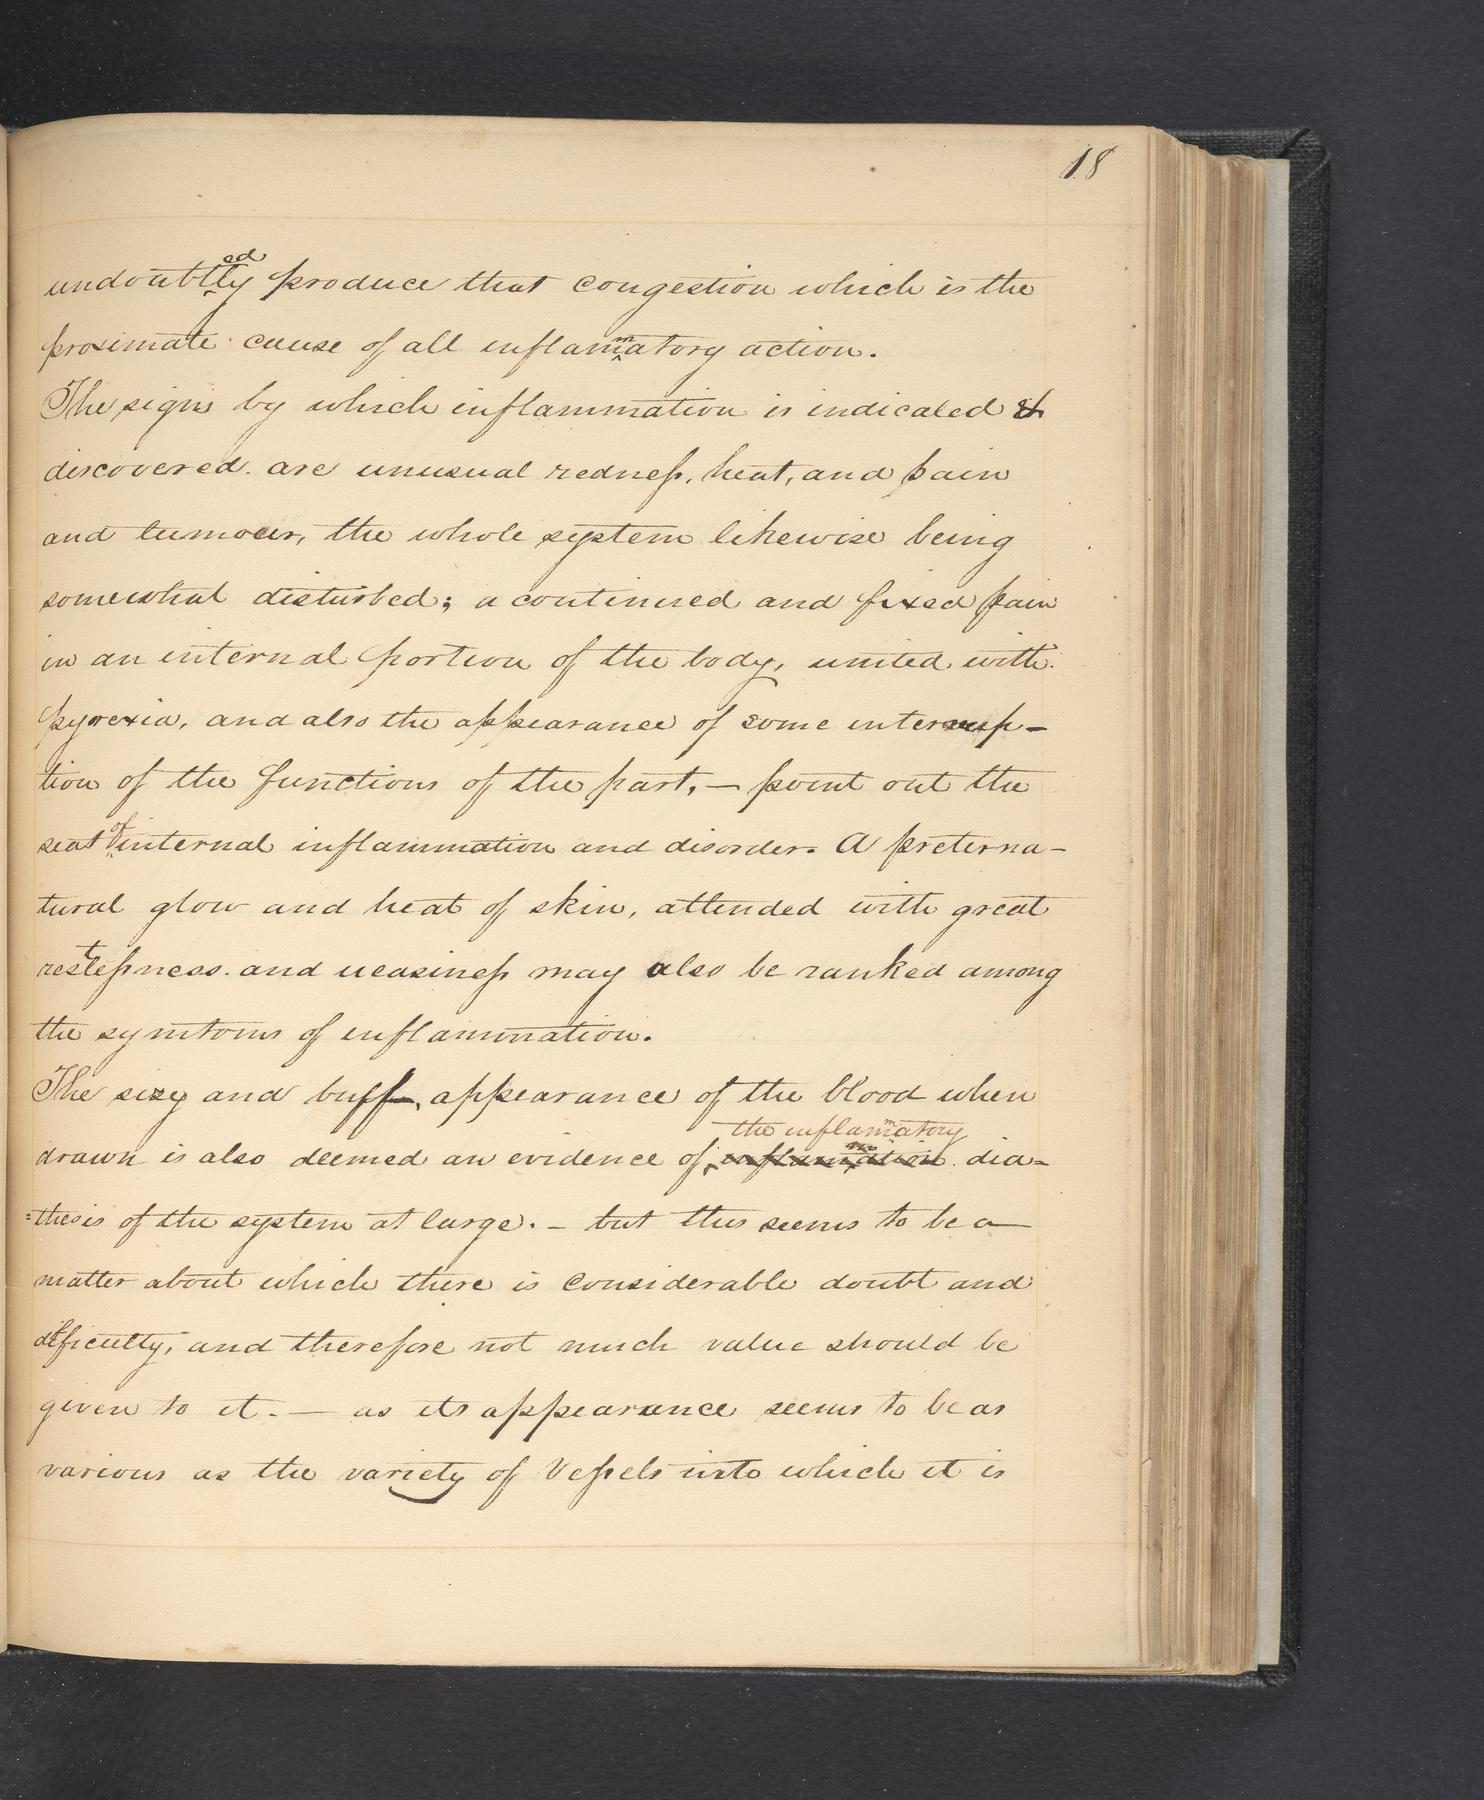 18
undoubtedly produce that congestion which is the
proximate cause of all inflammatory action.
The signs by which inflammation is indicated &
discovered are unusual redness, heat, and pain
and tumour, the whole system likewise being
somewhat disturbed; a continued and fixed pain
in an internal portion of the body, united with
pyrexia, and also the appearance of some interrup-
tion of the functions of the part, — point out the
seat of internal inflammation and disorder. A preterna-
tural glow and heat of skin, attended with great
restlessness. and uneasiness may also be ranked among
the symtoms of inflammation.
The sizy and buff, appearance of the blood when
the inflammatory
drawn is also deemed an evidence of inflammation dia=
=thesis of the system at large. – but this seems to be a
matter about which there is considerable doubt and
difficulty, and therefore not much value should be
given to it. — as its appearance seems to be as
various as the variety of Vessels into which it is